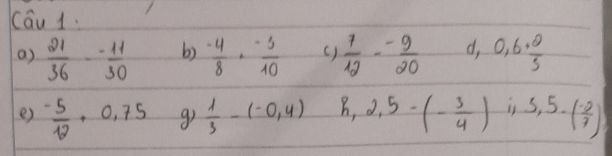 Câu 1.
a) 21/36 - -11/30 b) -4/8 + -3/10 c) 7/12 - -9/20 d, 0,6 + 2/3
e) -5/12 + 0,75 g) 1/3 - (-0,4) h, 2,5 - (-3/4) i, 3,5 - (-2/7)